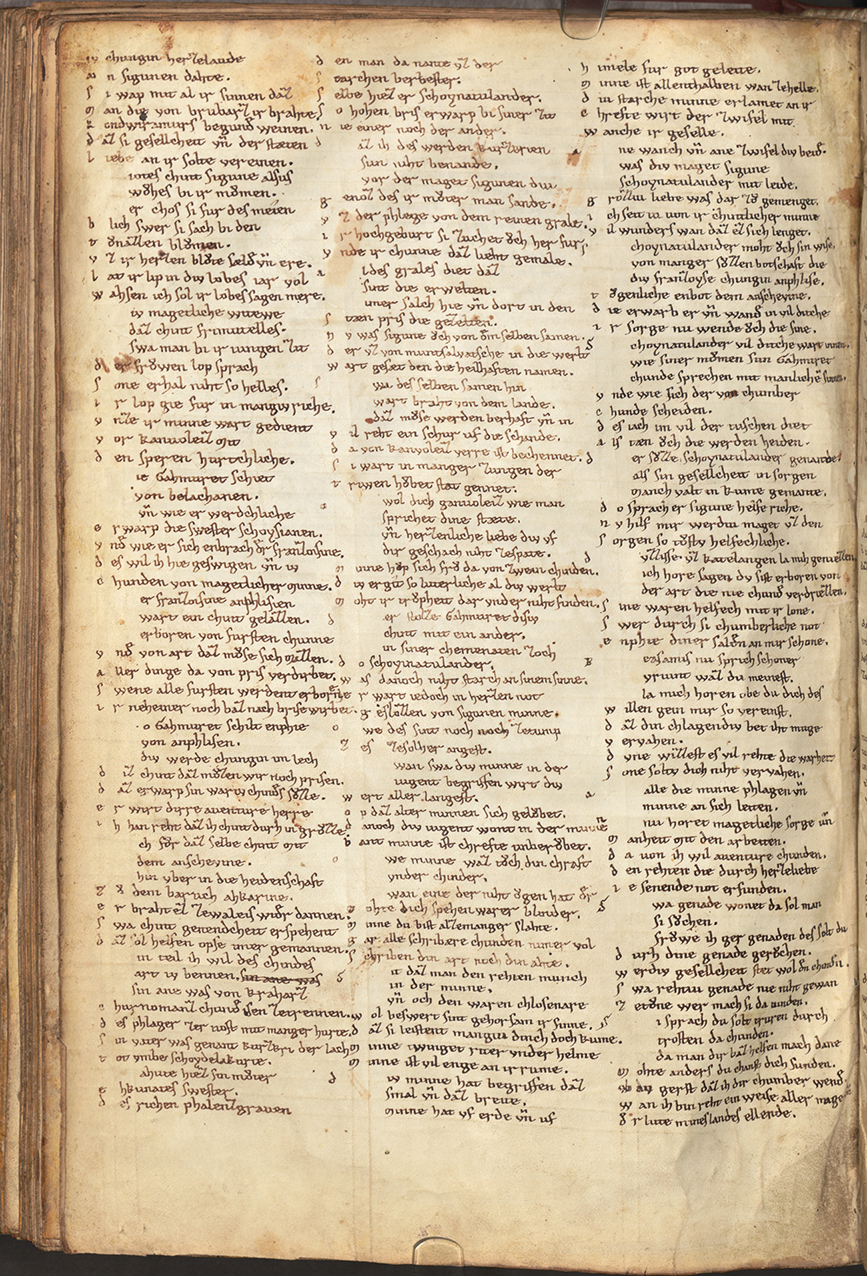 chungin herzelaude
n sigunen dahte.
s i wap mit al ir sinnen daz
m an die von brubarz ir brahte.
k ondwiramurs begund weinen.
d az si gesellcheit vn der stæten
l iebe an ir solte vereinen.
iotes chint sigune alsus
wohes bi ir mומen.
er chos si fur des meien
b lich swer si sach bi den
t ounazzen blomen.
v z ir herzen blote sæld vn ere.
l at ir lip in diu lobes iar vol
w ahsen ich sol ir lobes sagen mere.
magetliche witewe
daz chint frimutelles.
swa man bi ir iungen zit
d er frowen lop sprach
s one erhal niht so helles.
i r lop gie fur in mangiu riche.
v nze ir minne wart gedient
v or kanuoleiz mit
d en speren hurtchliche.
ie Gahmuret schiet
von belachanen.
vn wie er werdchliche
e rwarp die swester schoysianen.
v nd wie er sich enbrach der franzoisine.
d es wil ih hie geswigen vn iv
c hunden von magetlicher minne.
er franzoisine anphlisen
wart ein chint gelazzen.
erboren von fursten chunne
v nd von art daz mose sich mazzen.
a ller dinge da von pris verdirbet.
s wene alle fursten werdent erborne
i r neheiner noch baz nach brise wirbet.
o Gahmuret schilt enphie
von anphlisen.
div werde chungin im lech
d iz chint daz mozen wir noch prisen.
d az erwarp sin wariv chindes suzze.
e r wirt dirre aventure herre
i h han reht daz ih chint durh in grozze.
ch for daz selbe chint mit
dem anscheyine.
hin vber in die heidenschaft
z o dem baruch ahkarine.
e r braht ez zewaleis wider dannen.
s wa chint genendcheit erspehent
d az sol helfen opse imer gemannen.
in teil ih wil des chindes
art iv bennen.
sin ane was von kraharz
e hurnomanz chund isen zetrennen.
d es phlager zer tiost mit manger hurte.
s in vater was genant kurzkri der lach
t ot vmbe schoydelakurte.
ahute hiez sin moter
e hkunates swester.
d es richen phalenzgrauen
d en man da nante vz der
s tarchen berbester.
s elbe hiez er schoynatulander.
s o hohen bris erwarp bi siner zit
n ie einer noch der ander.
az ih des werden kurzkrien
sun niht benande.
vor der maget sigunen div
g enoz des ir moter man sande.
v z der phlege von dem reinen grale.
i r hochgeburt si zuchet och her fur.
v nde ir chunne daz lieht gemale.
l des grales diet daz
sint die erwelten.
imer salch hie vn dort in den
s tæten pris die gezelten.
n v was sigune och von dem selben samen.
d er vz von muntsalvatsche in die werlt
w art geset den die heilhaften namen.
wa des selben samen hin
wart braht von dem lande.
daz mose werden berhaft vn in
v il reht ein schur uf die schande.
d a von kanvoleiz verre ist bechennet.
s i wart in manger zungen der
t riwen hobet stat gennet.
wol dich ganuoleiz wie man
sprichet dine stæte.
vn herzenliche liebe div uf
dir geschach niht zespate.
m inne hop sich fru da von zwein chinden.
d iv ergie so luterliche al div werlt
m oht ir truopheit dar vnder niht finden.
er stolze Gahmuret disiv
chint mit ein ander.
in siner chemenaten zoch
d o schoynatulander.
w as danoch niht starch an sinem sinne.
e r wart iedoch in herzen not
g eslozzen von sigunen minne.
we des sint noch zetump
z e solher angest.
wan swa div minne in der
iugent begriffen wirt div
w ert aller langest.
o p daz alter minnen sich gelobet.
d anoch div iugent wont in der minne
b ant minne ist chrefte unberobet.
we minne waz toch din chraft
vnder chinder.
wan eine der niht ogen hat der
m ohte dich spehen warer blinder.
m inne du bist allemanger slahte.
g ar alle schribære chunden nimer vol
s chriben din art noch din ahte.
it daz man den rehten munich
in der minne.
vn och den waren chlosenare
w ol beswert sint gehorsam ir sinne.
d az si leistent mangiu dinch doch kume.
m inne twinget riter vnder helme
m inne ist vil enge an ir rume.
iv minne hat begriffen daz
smal vn daz breite.
minne hat vf erde vn uf
h imele fur got geleite.
m inne ist allenthalben wan zehelle.
d iu starche minne erlamet an ir
c hrefte wirt der zwifel mit
w anche ir geselle.
ne wanch vn ane zwifel div beidiv
was div maget sigune
schoynatulander mit leide.
g rozziv liebe was dar zo gemenget.
i ch seit iv von ir chintlicher minne
v il wunders wan daz ez sich lenget.
choynatulander moht och sin wise
von manger suzzen botschaft die
div franzoyse chungin anphlise.
t ogenliche enbot dem anscheyine.
d ie erwarb er vn wand in vil ditche
i r sorge nu wende och die sine.
choynatulander vil ditche wart innen.
wie siner mומen sun Gahmuret
chunde sprechen mit manlichen sinnen.
v nde wie sich der von chumber
c hunde scheiden.
d es iach im vil der tuschen diet
a ls tæn och die werden heiden.
er suzze schoynatulander genande
als sin gesellcheit in sorgen
manch valt in kume gemante.
d o sprach er sigune helfe riche.
n v hilf mir werdiu maget vz den
s orgen so tustu helfechliche.
vzlisse vz katelangen la mich geniezzen
ich hore sagen dv sist erboren von
der art die nie chund verdriezzen.
s ine waren helfech mit ir lone.
s wer durch si chumberliche not
e nphie diner sælden an mir schone.
ezsamis nu sprich schoner
vriunt waz du meinest.
la mich horen obe du dich des
w illen gein mir so vereinst.
d az din chlagendiv bet iht muge
v ervahen.
d vne wizzest es vil rehte die warheit
s one soltv dich niht vergahen.
alle die minne phlagen vn
minne an sich leiten.
nu horet magetliche sorge vn
m anheit mit den arbeiten.
d a von ih wil aventure chunden.
d en rehten die durch herzeliebe
i e senende not erfunden.
wa genade wonet da sol man
si sochen.
frowe ih ger genaden des solt du
d urh dine genade gerochen.
w erdiv gesellcheit stet wol den chinden.
s wa rehtiu genade nie niht gewan
z etone wer mach si da vinden.
i sprach du solt truren durch
trosten da chunden.
da man dir baz helfen mach dane
m ohte anders du chanst dich sunden.
op gerst daz ih dir chumber wende
w an ih bin reht ein weise aller mage
v r liute mines landes ellende.